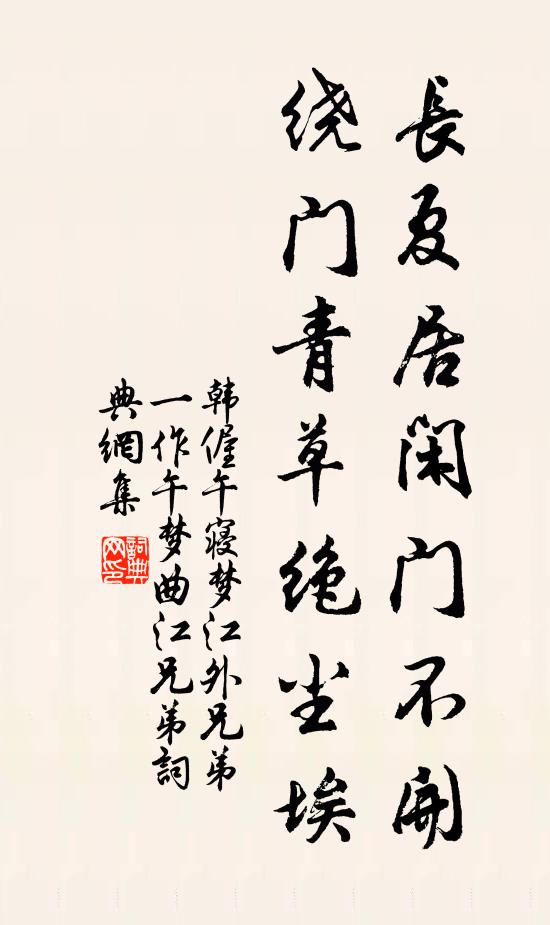 長夏居閑門不開
绕门青草绝尘埃
韩偓午寝梦江外兄弟
一作午梦曲江兄弟詞
典網集
詞典网印